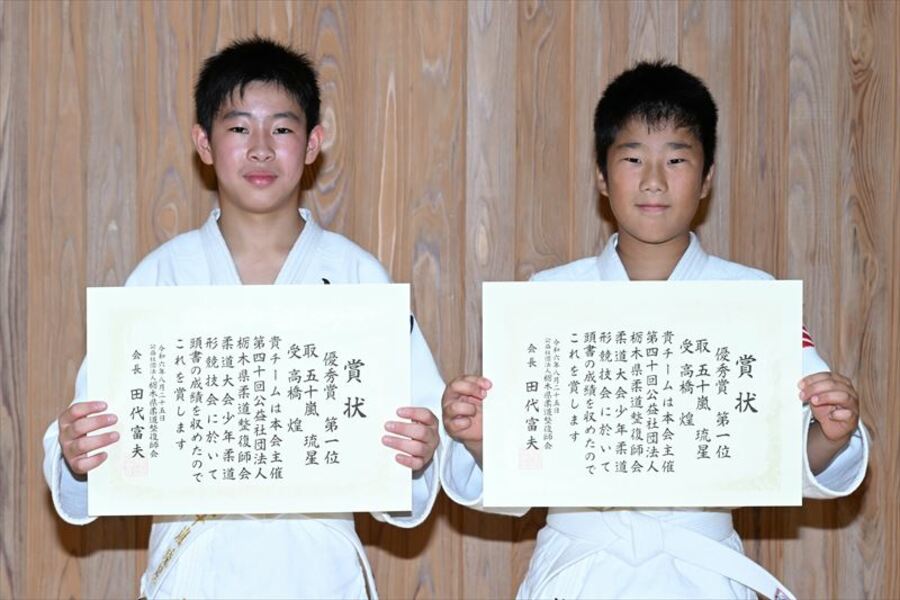 賞状
優秀賞 第一位
取 五十嵐 琉星
受 高橋 煌
貴チームは本会主催
第四十回公益社団法人
栃木県柔道整復師会
柔道大会少年柔道
形競技会に於いて
頭書の成績を収めたので
これを賞します
令和六年八月二十五日
公益社団法人栃木県柔道整復師会
会長 田代富夫
賞状
優秀賞 第一位
取 五十嵐 琉星
受 高橋 煌
貴チームは本会主催
第四十回公益社団法人
栃木県柔道整復師会
柔道大会少年柔道
形競技会に於いて
頭書の成績を収めたので
これを賞します
令和六年八月二十五日
公益社団法人栃木県柔道整復師会
会長 田代富夫